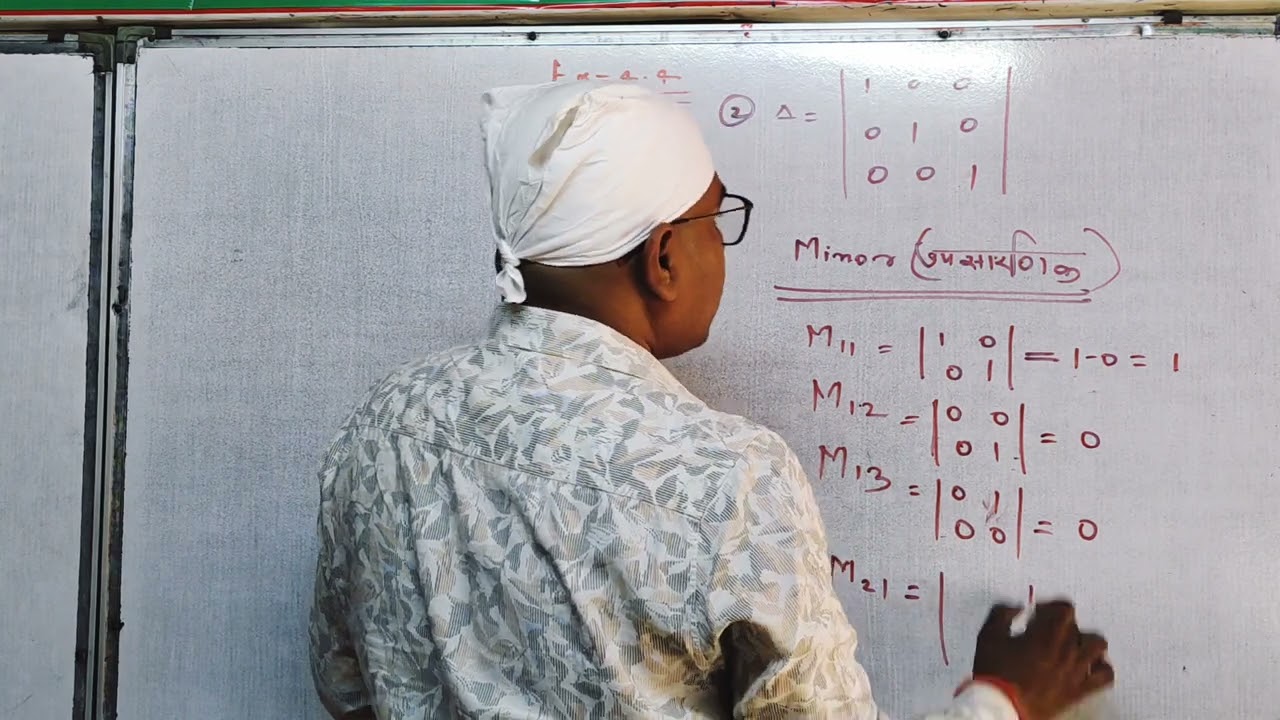 Ex-4.4
② Δ = | 1 0 0 |
| 0 1 0 |
| 0 0 1 |
Minor (उपसारणिक)
M11 = | 1 0 |
| 0 1 | = 1-0 = 1
M12 = | 0 0 |
| 0 1 | = 0
M13 = | 0 1 |
| 0 0 | = 0
M21 = |